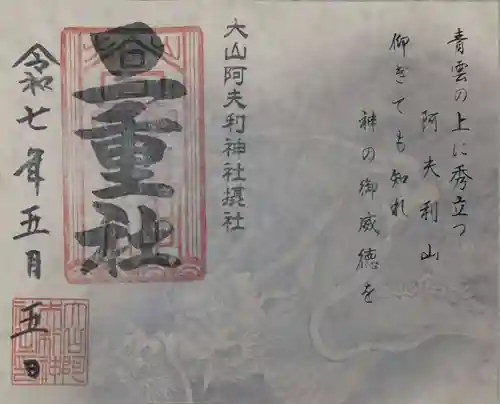 青雲の上に秀立つ
阿夫利山
仰ぎても知れ
神の御威徳を
大山阿夫利神社摂社
二重社
令和七年五月
五日